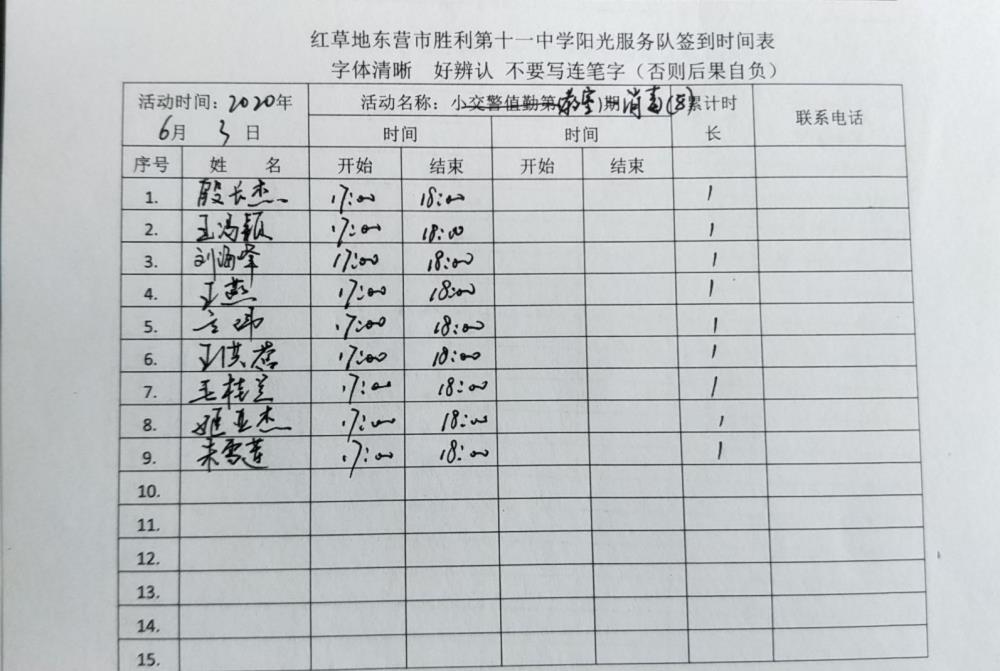 红草地东营市胜利第十一中学阳光服务队签到时间表
字体清晰 好辨认 不要写连笔字（否则后果自负）
活动时间：2020年 6月 3日 活动名称：小交警值勤第 教室 期 消毒(8) 累计时长 联系电话
时间 时间
序号 姓 名 开始 结束 开始 结束
1. 殷长杰 17:00 18:00 1
2. 王冯颖 17:00 18:00 1
3. 刘海峰 17:00 18:00 1
4. 王燕 17:00 18:00 1
5. 17:00 18:00 1
6. 王洪蕊 17:00 18:00 1
7. 王桂兰 17:00 18:00 1
8. 姬亚杰 17:00 18:00 1
9. 朱雪莲 17:00 18:00 1
10.
11.
12.
13.
14.
15.